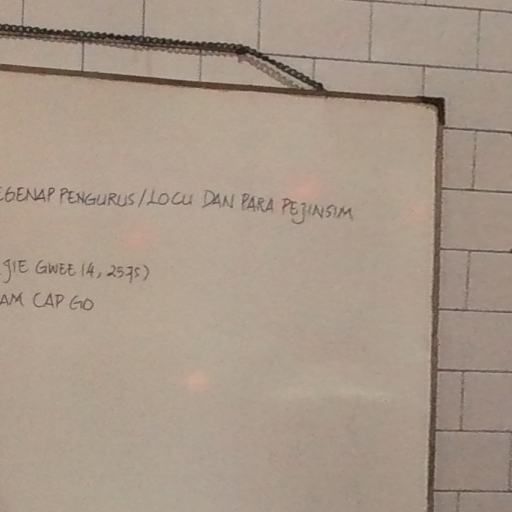 EGENAP PENGURUS/LOCU DAN PARA PEJINSIM
JIE GWEE 14, 2575)
AM CAP GO